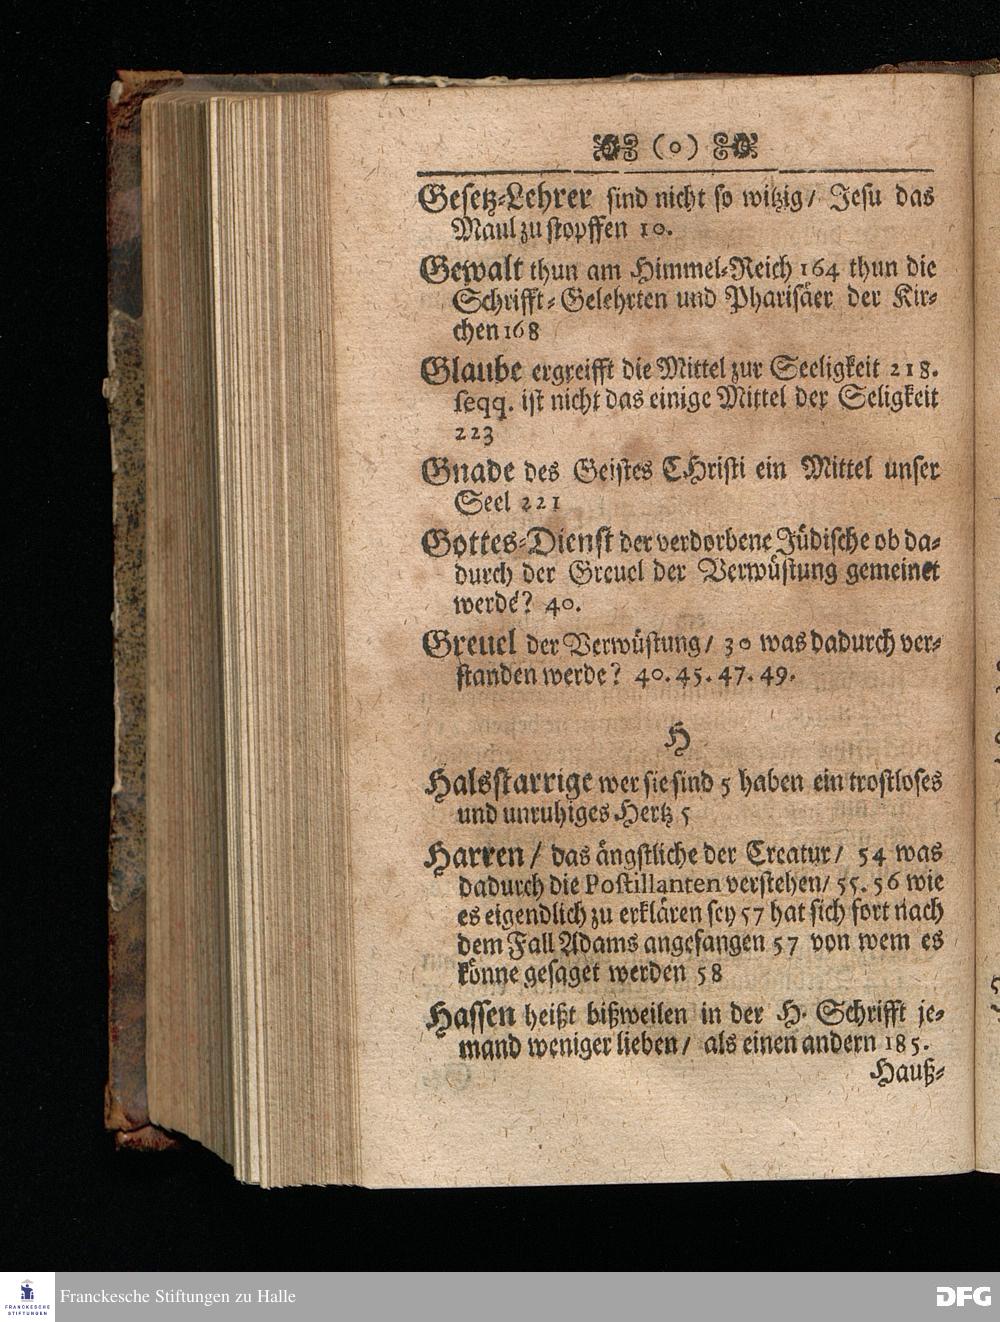 (o)
Gesetz-Lehrer sind nicht so witzig/ Jesu das
Maul zu stopffen 10.
Gewalt thun am Himmel-Reich 164 thun die
Schrifft-Gelehrten und Pharisäer der Kir-
chen 168
Glaube ergreifft die Mittel zur Seeligkeit 218.
seqq. ist nicht das einige Mittel der Seligkeit
223
Gnade des Geistes CHristi ein Mittel unser
Seel 221
Gottes-Dienst der verdorbene Jüdische ob da-
durch der Greuel der Verwüstung gemeinet
werde? 40.
Greuel der Verwüstung/ 30 was dadurch ver-
standen werde? 40. 45. 47. 49.
H
Halsstarrige wer sie sind 5 haben ein trostloses
und unruhiges Hertz 5
Harren / das ängstliche der Creatur/ 54 was
dadurch die Postillanten verstehen/ 55. 56 wie
es eigendlich zu erklären sey 57 hat sich fort nach
dem Fall Adams angefangen 57 von wem es
könne gesaget werden 58
Hassen heißt bißweilen in der H. Schrifft je-
mand weniger lieben/ als einen andern 185.
Hauß-
FRANCKESCHE
STIFTUNGEN
Franckesche Stiftungen zu Halle
DFG